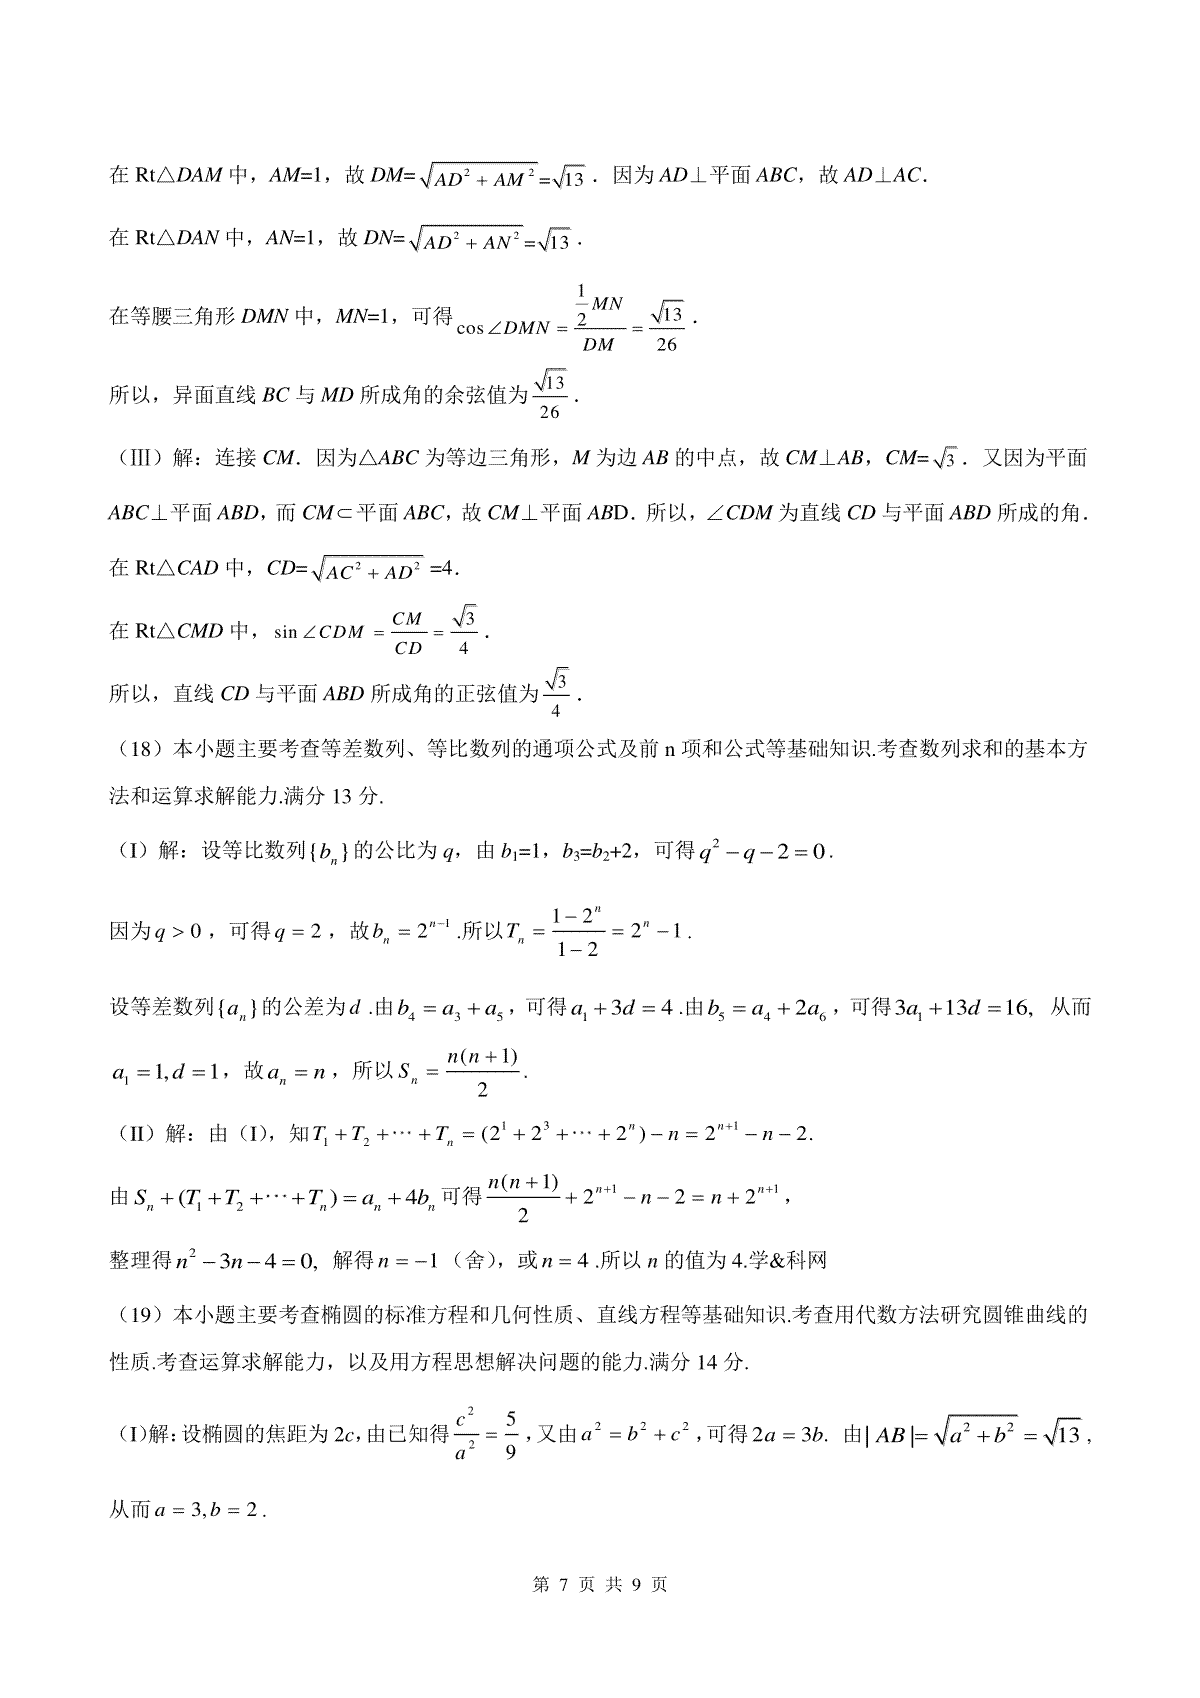 在 Rt△DAM 中，AM=1，故 DM=√(AD²+AM²)=√13．因为 AD⊥平面 ABC，故 AD⊥AC．
在 Rt△DAN 中，AN=1，故 DN=√(AD²+AN²)=√13．
在等腰三角形 DMN 中，MN=1，可得 cos∠DMN = (1/2 MN)/DM = √13/26．
所以，异面直线 BC 与 MD 所成角的余弦值为 √13/26．
（Ⅲ）解：连接 CM．因为△ABC 为等边三角形，M 为边 AB 的中点，故 CM⊥AB，CM=√3．又因为平面
ABC⊥平面 ABD，而 CM⊂平面 ABC，故 CM⊥平面 ABD．所以，∠CDM 为直线 CD 与平面 ABD 所成的角．
在 Rt△CAD 中，CD=√(AC²+AD²) =4．
在 Rt△CMD 中，sin∠CDM = CM/CD = √3/4．
所以，直线 CD 与平面 ABD 所成角的正弦值为 √3/4．
（18）本小题主要考查等差数列、等比数列的通项公式及前 n 项和公式等基础知识.考查数列求和的基本方
法和运算求解能力.满分 13 分.
（I）解：设等比数列{bₙ}的公比为 q，由 b₁=1，b₃=b₂+2，可得 q²−q−2=0.
因为 q>0，可得 q=2，故 bₙ=2ⁿ⁻¹.所以 Tₙ = (1−2ⁿ)/(1−2) = 2ⁿ−1.
设等差数列{aₙ}的公差为 d .由 b₄=a₃+a₅，可得 a₁+3d=4 .由 b₅=a₄+2a₆，可得 3a₁+13d=16, 从而
a₁=1,d=1，故 aₙ=n，所以 Sₙ = n(n+1)/2.
（II）解：由（I），知 T₁+T₂+⋯+Tₙ=(2¹+2³+⋯+2ⁿ)−n=2ⁿ⁺¹−n−2.
由 Sₙ+(T₁+T₂+⋯+Tₙ)=aₙ+4bₙ 可得 n(n+1)/2+2ⁿ⁺¹−n−2=n+2ⁿ⁺¹，
整理得 n²−3n−4=0, 解得 n=−1（舍），或 n=4 .所以 n 的值为 4.学&科网
（19）本小题主要考查椭圆的标准方程和几何性质、直线方程等基础知识.考查用代数方法研究圆锥曲线的
性质.考查运算求解能力，以及用方程思想解决问题的能力.满分 14 分.
（I）解：设椭圆的焦距为 2c，由已知得 c²/a² = 5/9，又由 a²=b²+c²，可得 2a=3b. 由|AB|=√(a²+b²)=√13，
从而 a=3,b=2 .
第 7 页 共 9 页